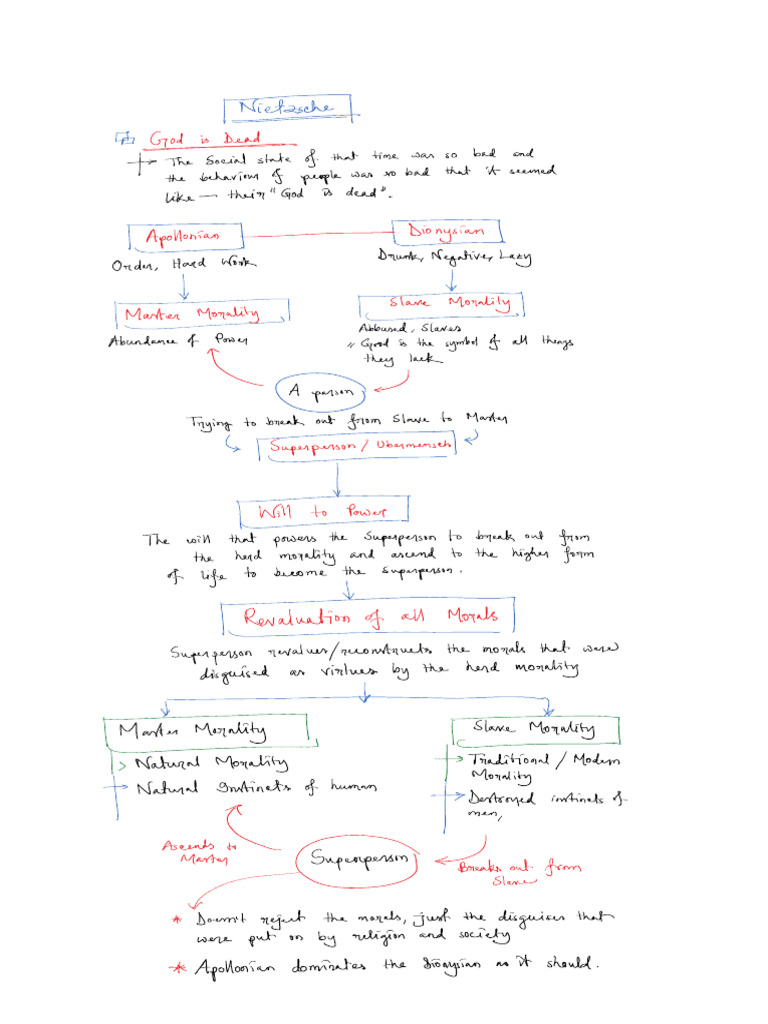 Nietzsche
God is Dead
The Social state of that time was so bad and
the behaviour of people was so bad that it seemed
like — their "God is dead".
Apollonian
Dionysian
Order, Hard Work
Drunk, Negative, Lazy
Master Morality
Slave Morality
Abundance of Power
Abbused, Slaves
"Good is the symbol of all things
they lack
A person
Trying to break out from Slave to Master
Superperson/
Will to Power
The will that powers the Superperson to break out from
the herd morality and ascend to the higher form
of life to become the Superperson.
Revaluation of all Morals
Superperson revalues/reconstructs the morals that were
disguised as virtues by the herd morality
Master Morality
Slave Morality
> Natural Morality
Traditional / Modern
Morality
Natural Instincts of human
Destroyed instincts of
men,
Ascends to
Master
Superperson
Breaks out from
Slave
* Doesn't reject the morals, just the disguises that
were put on by religion and society
* Apollonian dominates the Dionysian as it should.